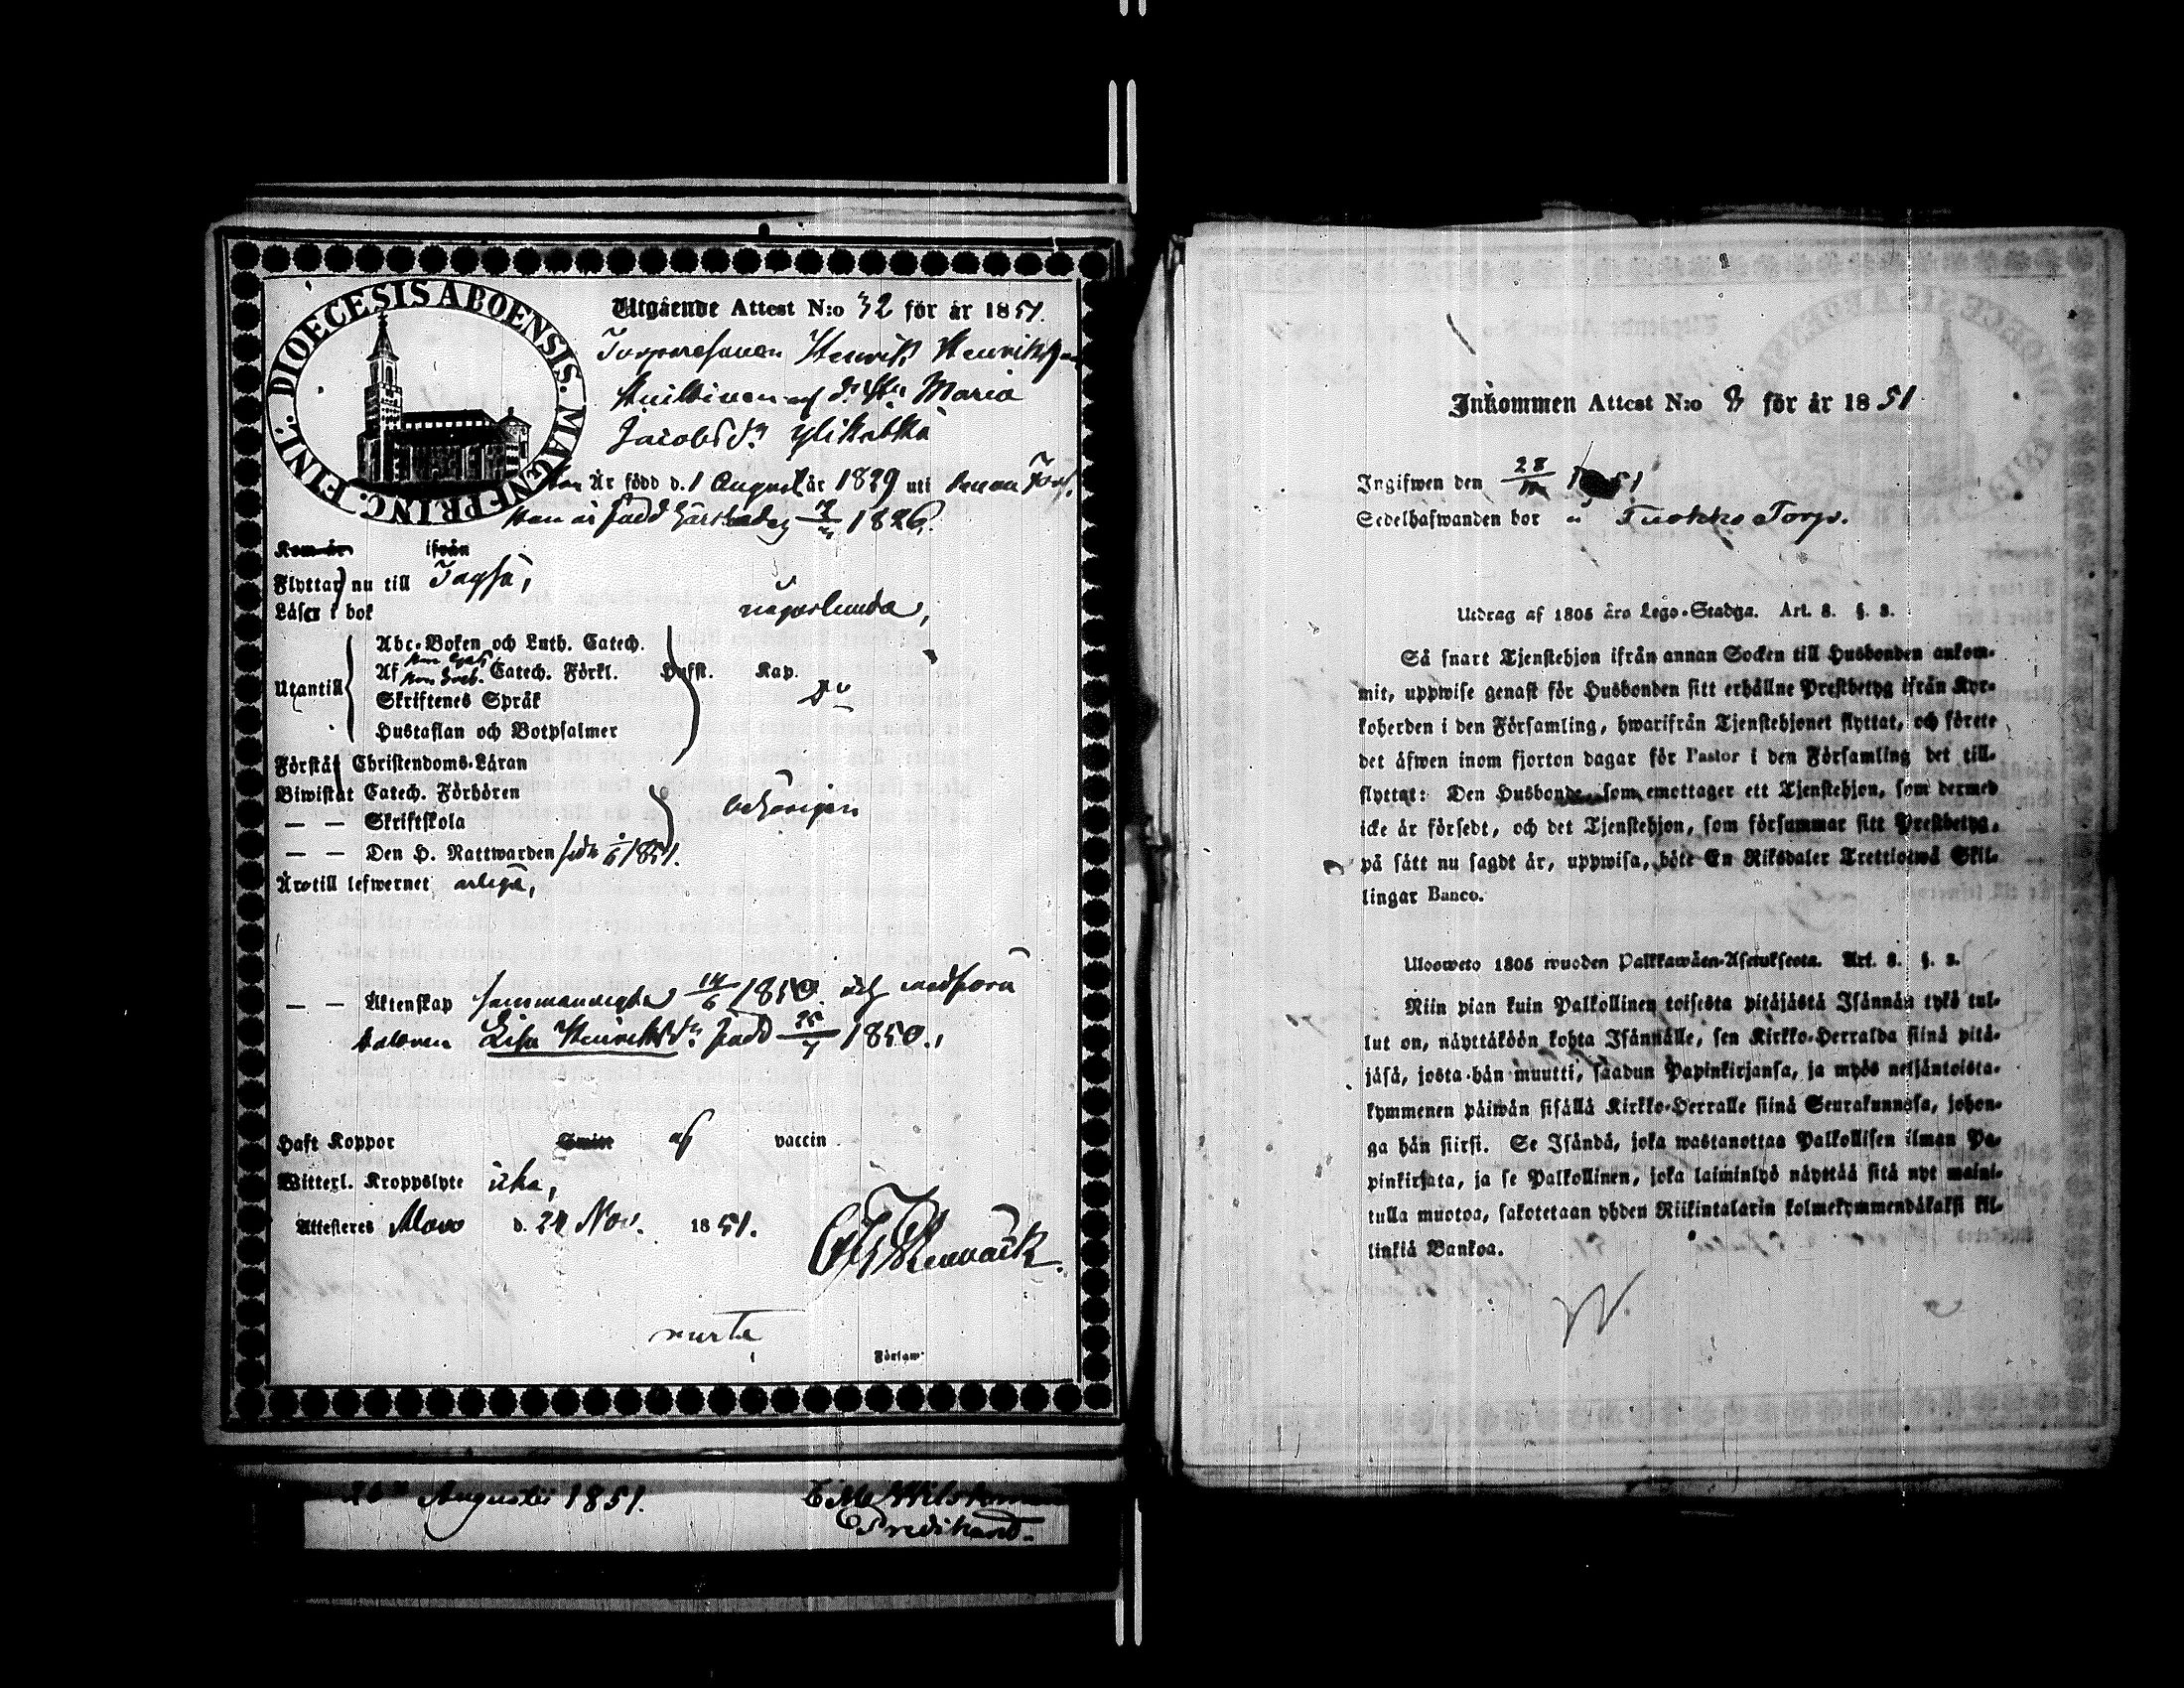 DIOECESIS ABOENSIS. MAGNI PRINC. FINL:
Utgående Attest N:o 32 för år 1851.
Henrik Henriksson
Maria
Jacobsdr Ylikotka
Hon Är född d. 1 August år 1829 uti denna Förs.
Han är född härstädes 1826.
Kom år ifrån
Flyttar nu till
Läser i bok någorlunda,
Abc-Boken och Luth. Catech.
Af Catech. Förkl. Hufst. Kap.
Utantill
Skriftenes Språk
Hustaflan och Botpsalmer
Förstår Christendoms-Läran
Biwistat Catech. Förhören
behörigen
— — Skriftskola
— — Den H. Nattwarden sedn 1851.
Äro till lefwernet ärliga,
— — Äktenskap sammanvigde 14/6 1850. och medföra
dottren Lisa Henriksdr: född 25/7 1850.,
Haft Koppor Smitt af vaccin
Witterl. Kroppslyte icke,
Attesteres Mouo d. 24 Nov. 1851.
i Försam
Augusti 1851.
Predikant.
Inkommen Attest N:o för år 1851
Ingifwen den 28 51
Sedelhafwanden bor å Tuokko Torp.
Utdrag af 1805 års Lego-Stadga. Art. 8. §. 3.
Så snart Tjenstehjon ifrån annan Socken till Husbonden ankom-
mit, uppwise genast för Husbonden sitt erhållne Prestbetyg ifrån Kyr-
koherden i den Församling, hwarifrån Tjenstehjonet flyttat, och förete
det äfwen inom fjorton dagar för Pastor i den Församling det till-
flyttat: Den Husbonde, som emottager ett Tjenstehjon, som dermed
icke är försedt, och det Tjenstehjon, som försummar sitt Prestbetyg,
på sätt nu sagdt är, uppwisa, böte En Riksdaler Trettiotwå Skil-
lingar Banco.
Ulosweto 1805 wuoden Palkkawäen-Asetuksesta. Art. 8. §. 3.
Niin pian kuin Palkollinen toisesta pitäjästä Isännän tykö tul-
lut on, näyttäköön kohta Isännälle, sen Kirkko-Herralda siinä pitä-
jäsä, josta hän muutti, saadun Papinkirjansa, ja myös neljäntoista-
kymmenen päiwän sisällä Kirkko-Herralle siinä Seurakunnasa, johon-
ga hän siirsi. Se Isändä, joka wastanottaa Palkollisen ilman Pa-
pinkirjata, ja se Palkollinen, joka laiminlyö näyttää sitä nyt maini-
tulla muotoa, sakotetaan yhden Riikintalarin kolmekymmendäkaksi kil-
linkiä Bankoa.